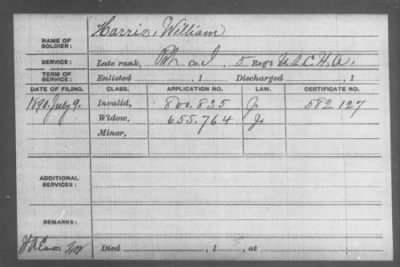 NAME OF SOLDIER: Harris, William
SERVICE: Late rank, Pvt Co. I, 5 Reg't U.S.C.H.A.
TERM OF SERVICE: Enlisted , 1 Discharged , 1
DATE OF FILING. CLASS. APPLICATION NO. LAW. CERTIFICATE NO.
1890, July 9. Invalid, 800.835 J. 582.127
Widow, 655.764 J.
Minor,
ADDITIONAL SERVICES:
REMARKS:
Died , 1 , at